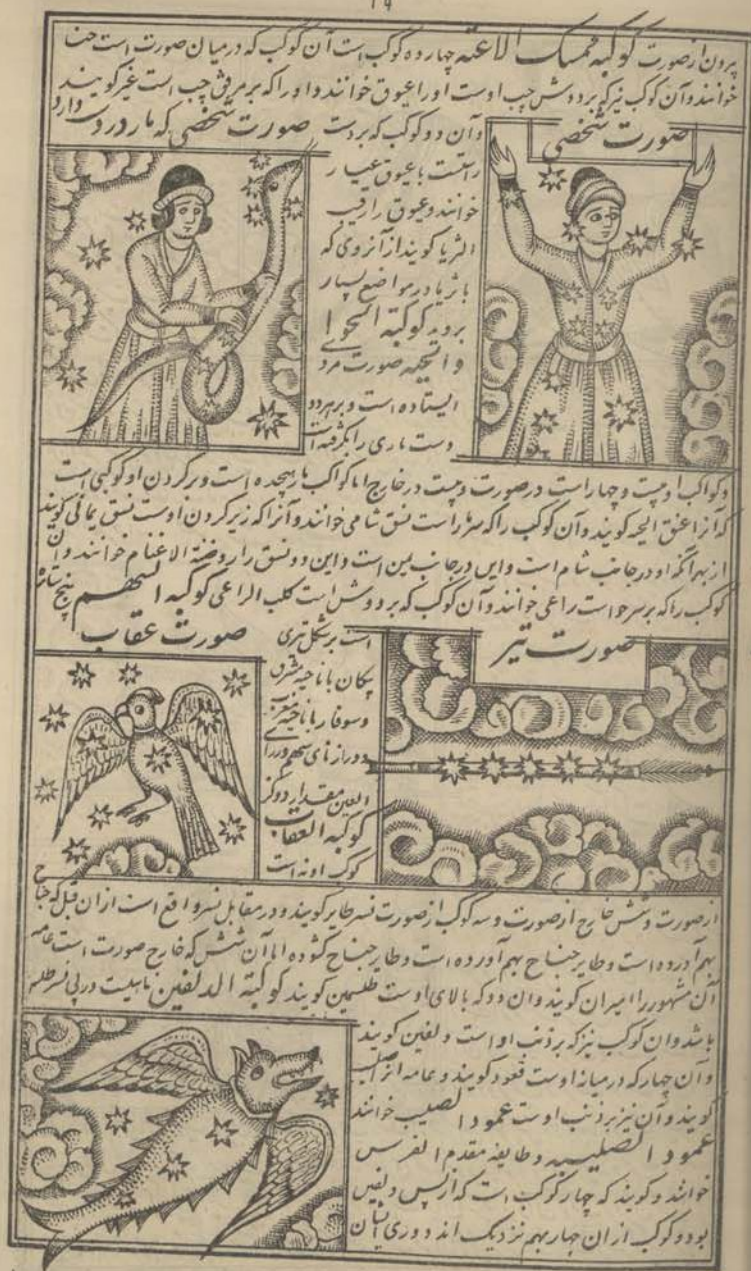 ۱۹
برون از صورت کوکبه ممسک الاعنه چهارده کوکب است آن کوکب که در میان صورت است
خوانند و آن کوکب نیر که بر دوش چپ اوست او را عیوق خوانند و او را که بر مرفق چپ است عنز کویند
و آن دو کوکب که بر دست
صورت شخصی که مار در دست دارد
صورت شخصی
راست با عیوق
خوانند و عیوق را رقیب
الثریا کویند از آنروی که
با ثریا در مواضع بسیار
بروید کوکبة الحوا
و الحیه صورت مرد
ایستاده است و بر هر دو
دست ماری را بگرفته است
و کواکب او بیست و چهار است در صورت و بیست در خارج اما کواکب مار هیجده است و بر کردن او کوکبی است
که آنرا عنق الحیه کویند و آن کوکب را که بر سر مار است نسق شامی خوانند و آنرا که زیر کردن اوست نسق یمانی کویند
از بهر آنکه او در جانب شام است و این در جانب یمن است و این دو نسق را روضة الاغنام خوانند و آن
کوکب را که بر سر حواست راعی خوانند و آن کوکب که بر دوش است کلب الراعی کوکبه السهم پنج ستاره
است بر شکل تیری
صورت تیر
صورت عقاب
پیکان با ناحیه مشرق
و سوفار با ناحیه مغرب
و درازنای سهم در رای
العین مقدار دو کز
کوکبه العقاب
کوکب او نه است
از صورت و شش خارج از صورت و سه کوکب از صورت نسر طایر کویند و در مقابل نسر واقع است از ان قبل که جناح
بهم آورده است و طایر جناح بهم آورده است و طایر جناح کشوده اما آن شش که خارج صورت است عامه
آن مشهور را میزان کویند وان دو که بالای اوست ظلیمین کویند کوکبة الدلفین در پی نسر طایر
باشد وان کوکب نیز که بر ذنب او است دلفین کویند
و آن چهار که در میانه اوست قعود کویند و عامه آنرا صلیب
کویند و آن نیز بر ذنب اوست عمود الصلیب خوانند
عمود الصلیب و طایفه مقدم الفرس
خوانند و کویند که چهار کوکب است که از پس دلفین
بود دو کوکب از ان چهار بهم نزدیک اند دوری ایشان